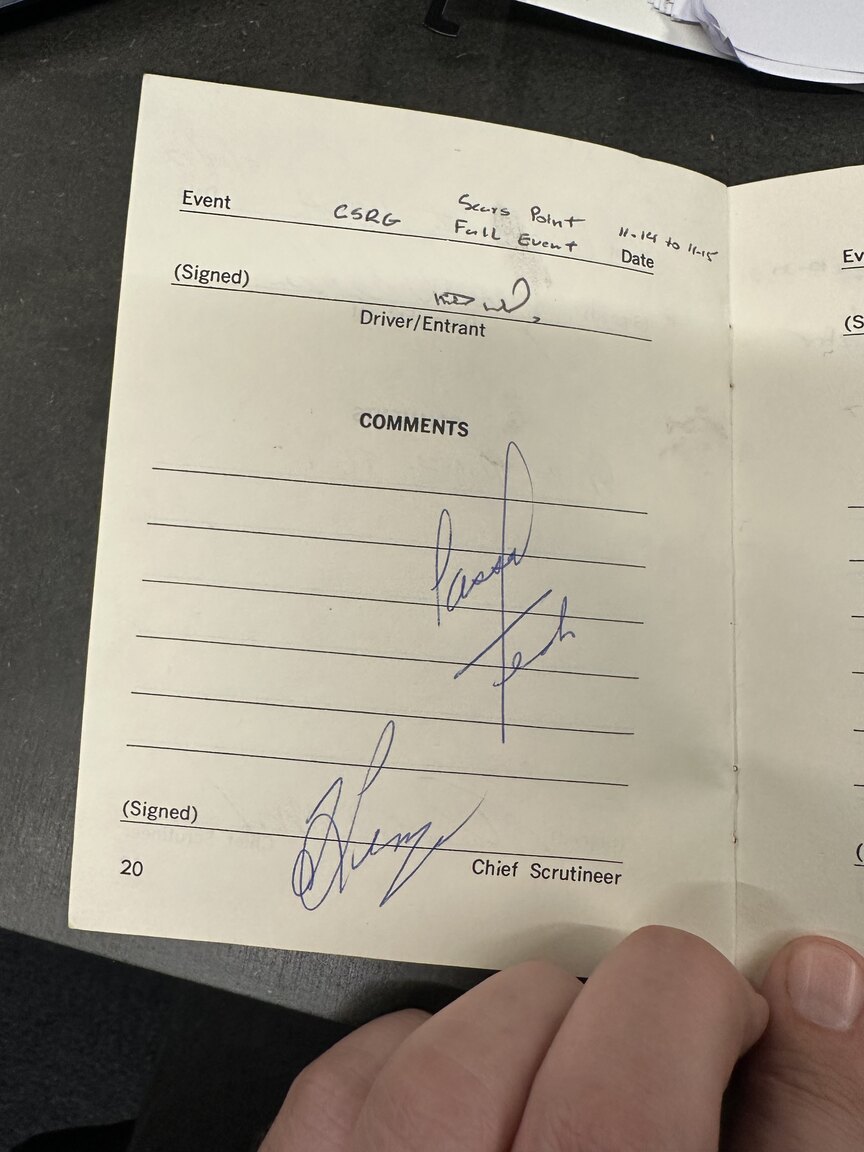 Sears Point
Event CSRG Fall Event 11-14 to 11-15
Date
(Signed)
Driver/Entrant
COMMENTS
Passed
Tech
(Signed)
20 Chief Scrutineer
Ev
(S
(